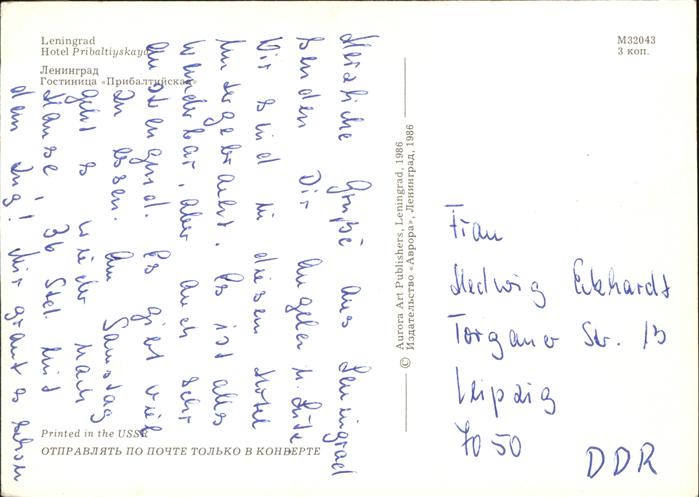 Leningrad
Hotel Pribaltiyskaya
Ленинград
Гостиница «Прибалтийская»
M32043
3 коп.
Herzliche Grüße aus Leningrad
senden Dir Angela u. Lutz
Wir sind in diesem Hotel
untergebracht. Es ist alles
wunderbar, aber auch sehr
anstrengend. Es gibt viel
zu essen. Am Samstag
geht's wieder nach
Hause, 36 Std mit
dem Zug! Mir graut's schon
© Aurora Art Publishers, Leningrad, 1986
Издательство «Аврора», Ленинград, 1986
Frau
Hedwig Eckhardt
Torgauer Str. 13
Leipzig
7050
DDR
Printed in the USSR
ОТПРАВЛЯТЬ ПО ПОЧТЕ ТОЛЬКО В КОНВЕРТЕ